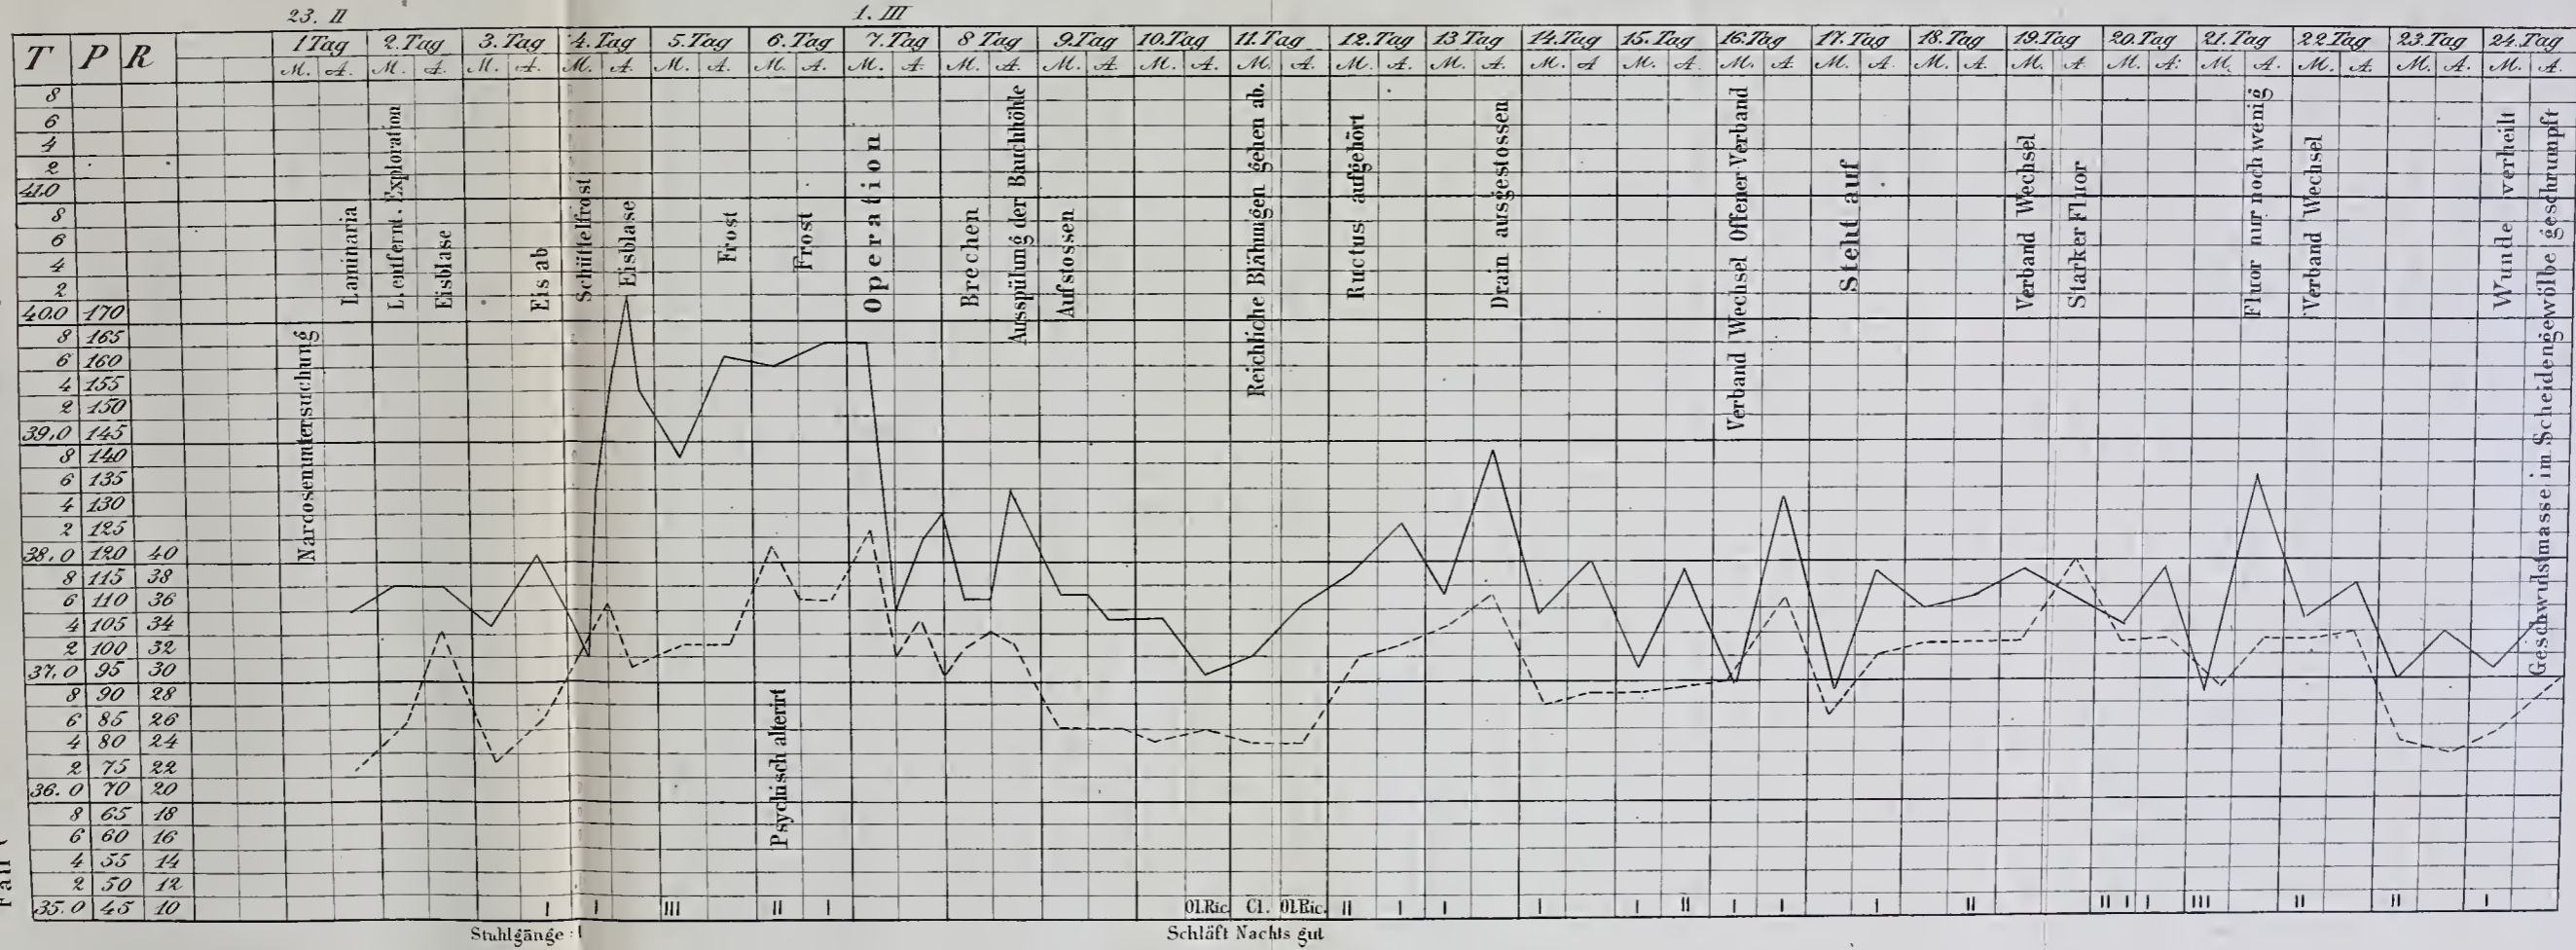 23. II 1. III
T P R 1 Tag 2. Tag 3. Tag 4. Tag 5. Tag 6. Tag 7. Tag 8 Tag 9. Tag 10. Tag 11. Tag 12. Tag 13 Tag 14. Tag 15. Tag 16. Tag 17. Tag 18. Tag 19. Tag 20. Tag 21. Tag 22 Tag 23. Tag 24. Tag
M. A. M. A. M. A. M. A. M. A. M. A. M. A. M. A. M. A. M. A. M. A. M. A. M. A. M. A M. A. M. A. M. A. M. A. M. A M. A. M. A. M. A. M. A. M. A.
8
6
4
2
41.0
8
6
4
2
40.0 170
8 165
6 160
4 155
2 150
39,0 145
8 140
6 135
4 130
2 125
38,0 120 40
8 115 38
6 110 36
4 105 34
2 100 32
37,0 95 30
8 90 28
6 85 26
4 80 24
2 75 22
36.0 70 20
8 65 18
6 60 16
4 55 14
2 50 12
35.0 45 10
Narcosenuntersuchung
Laminaria
L. entfernt. Exploration
Eisblase
Eis ab
Schüttelfrost
Eisblase
Frost
Psychisch alterirt
Frost
Operation
Brechen
Ausspülung der Bauchhöhle
Aufstossen
Reichliche Blähungen gehen ab.
Ructus aufgehört
Drain ausgestossen
Verband Wechsel Offener Verband
Steht auf
Verband Wechsel
Starker Fluor
Fluor nur noch wenig
Verband Wechsel
Wunde verheilt
Geschwulstmasse im Scheidengewölbe geschrumpft
I I III II I Ol.Ric. Cl. Ol.Ric. II I I I I II I I I II II I I III II II I
Stuhlgänge : I Schläft Nachts gut